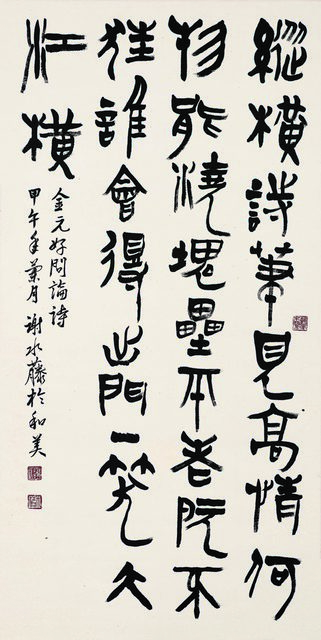 縱橫詩筆見高情何
物能澆塊壘平老阮不
狂誰會得出門一笑大
江橫
金元好問論詩
甲午年月謝水藤於和美